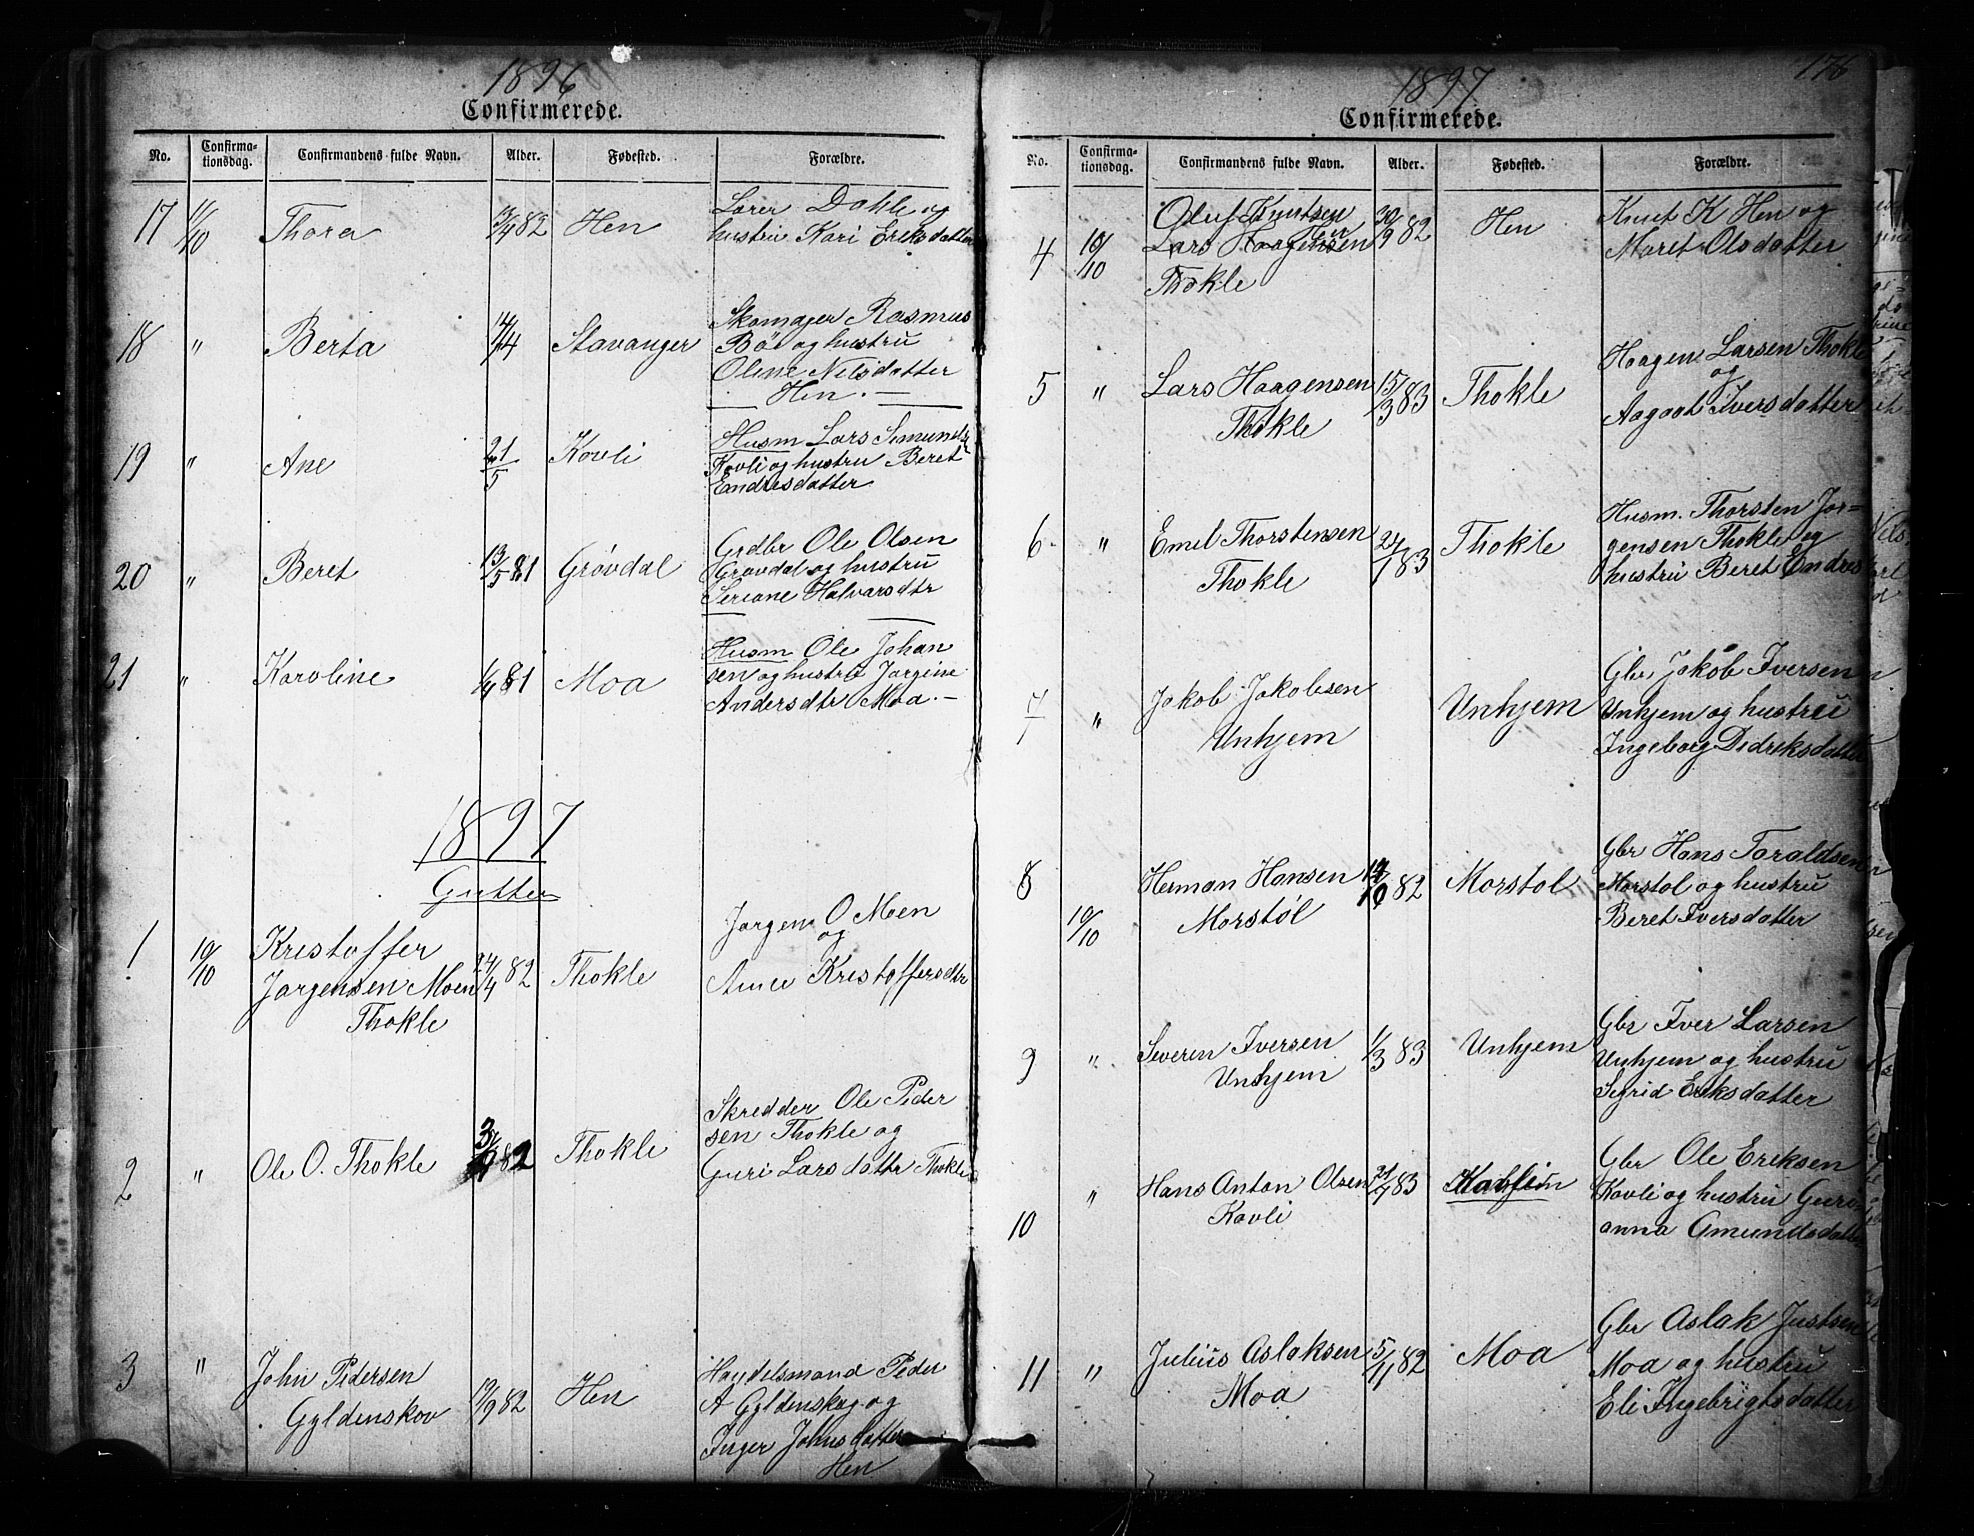 1896
Confirmerede.
No. Confirma-tionsdag. Confirmandens fulde Navn. Alder. Fødested. Forældre.
17 11/10 Thora 13/4 82 Hen Lærer Dahle og
hustru Kari Eriksdatter
18 " Berta Stavanger Skomager Rasmus
Böe og hustru
Oline Nilsdatter
Hen. —
19 " Ane 21/5 Kovli Husm Lars Amunds
Kovli og hustru Beret
Endresdatter
20 " Beret 13/5 81 Grövdal Grdbr Ole Olsen
Grövdal og hustru
Seriane Halvarsdtr
21 " Karoline 1/4 81 Moa Husm Ole Johan
sen og hustru Jørgine
Andersdtr Moa. —
1897
Gutter
1 10/10 Kristoffer
Jørgensen Moen
Thokle 24/4 82 Thokle Jørgen O Moen
og
Anne Kristoffersdtr
2 " Ole O. Thokle 82 Thokle Skredder Ole Peder
sen Thokle og
Guri Larsdattr Thokle
3 " John Pedersen
Gyldenskov 19/9 82 Hen Handelsmand Peder
A Gyldenskog og
Inger Johnsdatter
Hen
176
1897
Confirmerede.
No. Confirma-tionsdag. Confirmandens fulde Navn. Alder. Fødested. Forældre.
4 10/10 Oluf Knutsen
Hen
Lars Haagensen
Thokle 30/9 82 Hen Knut K Hen og
Maret Olsdatter
5 " Lars Haagensen
Thokle 15/3 83 Thokle Haagen Larsen Thokle
og
Aagaat Iversdatter
6 " Emil Thorstensen
Thokle 24/1 83 Thokle Husm. Thorsten Jør-
gensen Thokle og
hustru Beret Endres
7 " Jakob Jakobsen
Unhjem Unhjem Gbr Jakob Iversen
Unhjem og hustru
Ingeborg Didriksdatter
8 10/10 Herman Hansen
Morstøl 82 Morstol Gbr Hans Toraldsen
Morstol og hustru
Beret Iversdatter
9 " Severin Iversen
Unhjem 1/3 83 Unhjem Gbr Iver Larsen
Unhjem og hustru
Sigrid Eriksdatter
10 " Hans Anton Olsen
Kovli 83 Gbr Ole Eriksen
Kovli og hustru Guri
anna Amundsdatter
11 " Julius Aslaksen
Moa 5/11 82 Moa Gbr Aslak Justsen
Moa og hustru
Eli Ingebrigtsdatter